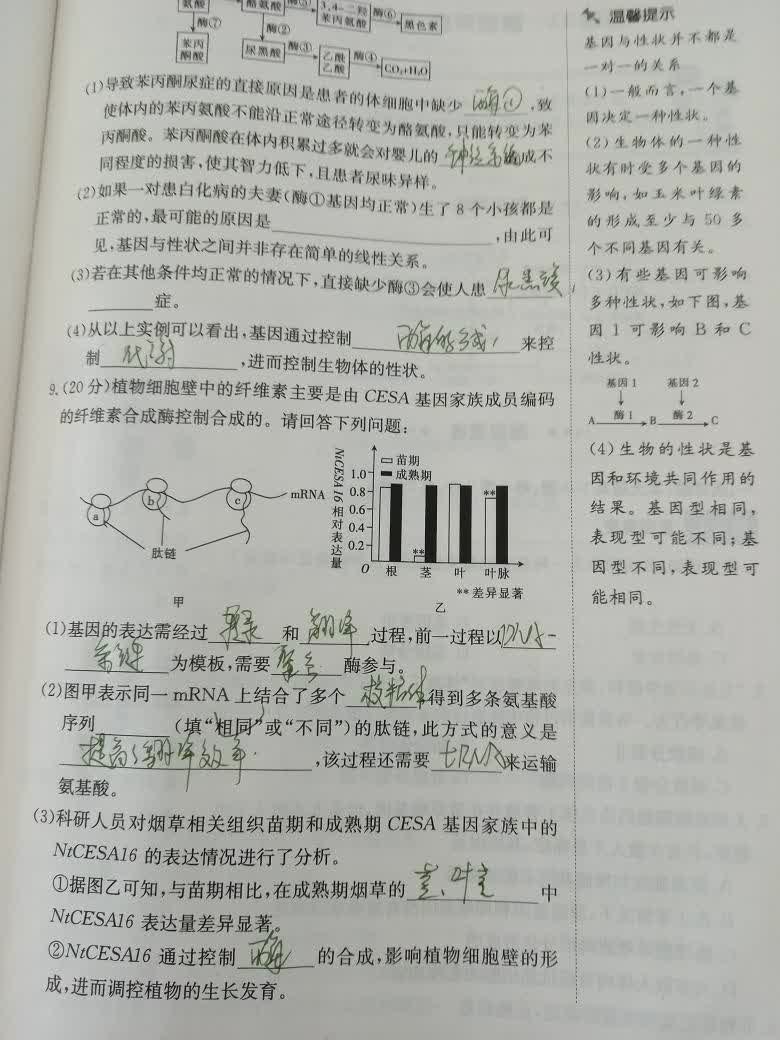 氨酸
酪氨酸
酶⑤
3,4-二羟
苯丙氨酸
酶⑥
黑色素
酶⑦
酶②
苯丙
酮酸
尿黑酸
酶③
乙酰
乙酸
酶④
CO₂+H₂O
(1)导致苯丙酮尿症的直接原因是患者的体细胞中缺少 酶① ,致
使体内的苯丙氨酸不能沿正常途径转变为酪氨酸,只能转变为苯
丙酮酸。苯丙酮酸在体内积累过多就会对婴儿的 神经系统 造成不
同程度的损害,使其智力低下,且患者尿味异样。
(2)如果一对患白化病的夫妻(酶①基因均正常)生了8个小孩都是
正常的,最可能的原因是
,由此可
见,基因与性状之间并非存在简单的线性关系。
(3)若在其他条件均正常的情况下,直接缺少酶③会使人患 尿黑
症。
(4)从以上实例可以看出,基因通过控制 酶的合成 来控
制 代谢 ,进而控制生物体的性状。
9.(20分)植物细胞壁中的纤维素主要是由CESA基因家族成员编码
的纤维素合成酶控制合成的。请回答下列问题:
a
b
c
mRNA
肽链
甲
NtCESA16相对表达量
苗期
成熟期
1.0
0.8
0.6
0.4
0.2
O
**
**
根 茎 叶 叶脉
**差异显著
乙
(1)基因的表达需经过 转录 和 翻译 过程,前一过程以 DNA一
条链 为模板,需要 聚合 酶参与。
(2)图甲表示同一mRNA上结合了多个 核糖体 得到多条氨基酸
序列 (填“相同”或“不同”)的肽链,此方式的意义是
提高了翻译效率 ,该过程还需要 tRNA 来运输
氨基酸。
(3)科研人员对烟草相关组织苗期和成熟期CESA基因家族中的
NtCESA16的表达情况进行了分析。
①据图乙可知,与苗期相比,在成熟期烟草的 茎、叶 中
NtCESA16表达量差异显著。
②NtCESA16通过控制 酶 的合成,影响植物细胞壁的形
成,进而调控植物的生长发育。
温馨提示
基因与性状并不都是
一对一的关系
(1)一般而言,一个基
因决定一种性状。
(2)生物体的一种性
状有时受多个基因的
影响,如玉米叶绿素
的形成至少与50多
个不同基因有关。
(3)有些基因可影响
多种性状,如下图,基
因1可影响B和C
性状。
基因1 基因2
A 酶1 B 酶2 C
(4)生物的性状是基
因和环境共同作用的
结果。基因型相同,
表现型可能不同;基
因型不同,表现型可
能相同。